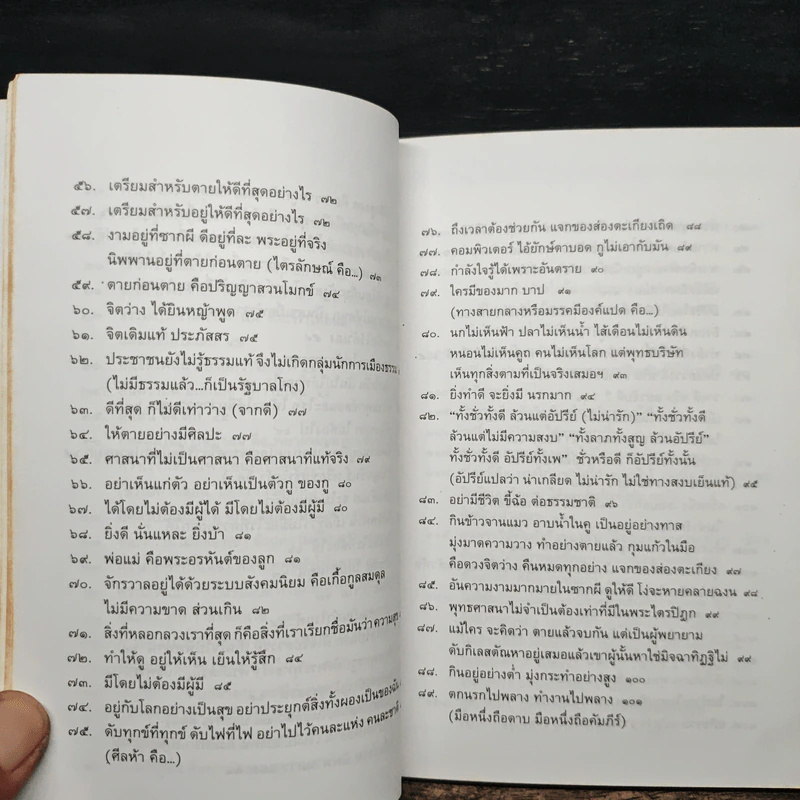 ๕๖. เตรียมสำหรับตายให้ดีที่สุดอย่างไร ๗๒
๕๗. เตรียมสำหรับอยู่ให้ดีที่สุดอย่างไร ๗๒
๕๘. งามอยู่ที่ซากผี ดีอยู่ที่ละ พระอยู่ที่จริง
นิพพานอยู่ที่ตายก่อนตาย (ไตรลักษณ์ คือ...) ๗๓
๕๙. ตายก่อนตาย คือปริญญาสวนโมกข์ ๗๔
๖๐. จิตว่าง ได้ยินหญ้าพูด ๗๕
๖๑. จิตเดิมแท้ ประภัสสร ๗๕
๖๒. ประชาชนยังไม่รู้ธรรมแท้ จึงไม่เกิดกลุ่มนักการเมืองธรรม
(ไม่มีธรรมแล้ว...ก็เป็นรัฐบาลโกง)
๖๓. ดีที่สุด ก็ไม่ดีเท่าว่าง (จากดี) ๗๗
๖๔. ให้ตายอย่างมีศิลปะ ๗๗
๖๕. ศาสนาที่ไม่เป็นศาสนา คือศาสนาที่แท้จริง ๗๙
๖๖. อย่าเห็นแก่ตัว อย่าเห็นเป็นตัวกู ของกู ๘๐
๖๗. ได้โดยไม่ต้องมีผู้ได้ มีโดยไม่ต้องมีผู้มี ๘๐
๖๘. ยิ่งดี นั่นแหละ ยิ่งบ้า ๘๑
๖๙. พ่อแม่ คือพระอรหันต์ของลูก ๘๑
๗๐. จักรวาลอยู่ได้ด้วยระบบสังคมนิยม คือเกื้อกูลสมดุล
ไม่มีความขาด ส่วนเกิน ๘๒
๗๑. สิ่งที่หลอกลวงเราที่สุด ก็คือสิ่งที่เราเรียกชื่อมันว่า ความสุข
๗๒. ทำให้ดู อยู่ให้เห็น เย็นให้รู้สึก ๘๔
๗๓. มีโดยไม่ต้องมีผู้มี ๘๕
๗๔. อยู่กับโลกอย่างเป็นสุข อย่าประยุกต์สิ่งทั้งผองเป็นของฉัน
๗๕. ดับทุกข์ที่ทุกข์ ดับไฟที่ไฟ อย่าไปไว้คนละแห่ง คนละชาติ
(ศีลห้า คือ...)
๗๖. ถึงเวลาต้องช่วยกัน แจกของส่องตะเกียงเถิด ๘๘
๗๗. คอมพิวเตอร์ ไอ้ยักษ์ตาบอด กูไม่เอากับมัน ๘๙
๗๘. กำลังใจรู้ได้เพราะอันตราย ๙๐
๗๙. ใครมีของมาก บาป ๙๑
(ทางสายกลางหรือมรรคมีองค์แปด คือ...)
๘๐. นกไม่เห็นฟ้า ปลาไม่เห็นน้ำ ไส้เดือนไม่เห็นดิน
หนอนไม่เห็นคูถ คนไม่เห็นโลก แต่พุทธบริษัท
เห็นทุกสิ่งตามที่เป็นจริงเสมอฯ ๙๓
๘๑. ยิ่งทำดี จะยิ่งมี นรกมาก ๙๔
๘๒. “ทั้งชั่วทั้งดี ล้วนแต่อัปรีย์ (ไม่น่ารัก)” “ทั้งชั่วทั้งดี
ล้วนแต่ไม่มีความสงบ” “ทั้งลาภทั้งสูญ ล้วนอัปรีย์”
ทั้งชั่วทั้งดี อัปรีย์ทั้งเพ” ชั่วหรือดี ก็อัปรีย์ทั้งนั้น
(อัปรีย์แปลว่า น่าเกลียด ไม่น่ารัก ไม่ใช่ทางสงบเย็นแท้) ๙๕
๘๓. อย่ามีชีวิต ขี้ฉ้อ ต่อธรรมชาติ ๙๖
๘๔. กินข้าวจานแมว อาบน้ำในคู เป็นอยู่อย่างทาส
มุ่งมาดความว่าง ทำอย่างตายแล้ว กุมแก้วในมือ
คือดวงจิตว่าง คืนหมดทุกอย่าง แจกของส่องตะเกียง ๙๗
๘๕. อันความงามมากมายในซากผี ดูให้ดี โง่จะหายคลายฉงน ๙๘
๘๖. พุทธศาสนาไม่จำเป็นต้องเท่าที่มีในพระไตรปิฎก ๙๙
๘๗. แม้ใคร จะคิดว่า ตายแล้วจบกัน แต่เป็นผู้พยายาม
ดับกิเลสตัณหาอยู่เสมอแล้วเขาผู้นั้นหาใช่มิจฉาทิฏฐิไม่ ๙๙
๘๘. กินอยู่อย่างต่ำ มุ่งกระทำอย่างสูง ๑๐๐
๘๙. ตกนรกไปพลาง ทำงานไปพลาง ๑๐๑
(มือหนึ่งถือดาบ มือหนึ่งถือคัมภีร์)